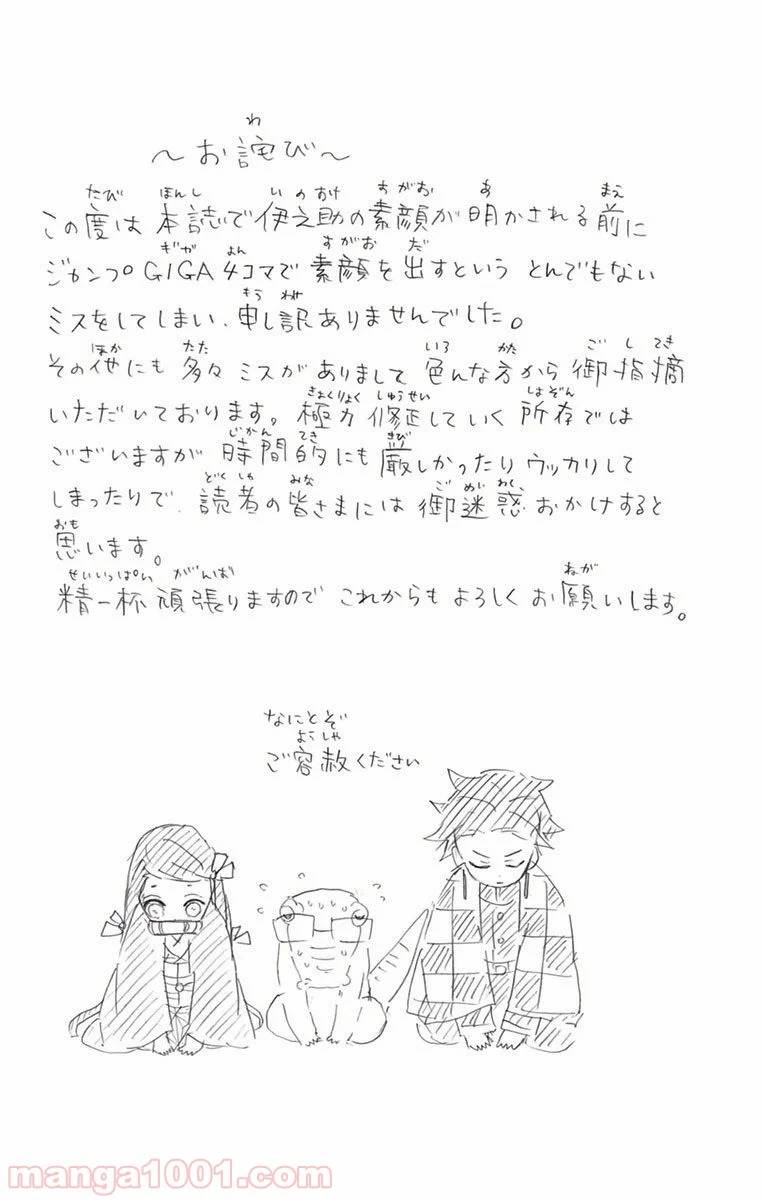 ～お詫び～
この度は本誌で伊之助の素顔が明かされる前に
ジャンプGIGA4コマで素顔を出すというとんでもない
ミスをしてしまい、申し訳ありませんでした。
その他にも多々ミスがありまして色んな方から御指摘
いただいております。極力修正していく所存では
ございますが時間的にも厳しかったりウッカリして
しまったりで、読者の皆さまには御迷惑おかけすると
思います。
精一杯頑張りますのでこれからもよろしくお願いします。
なにとぞ
ご容赦ください
manga1001.com